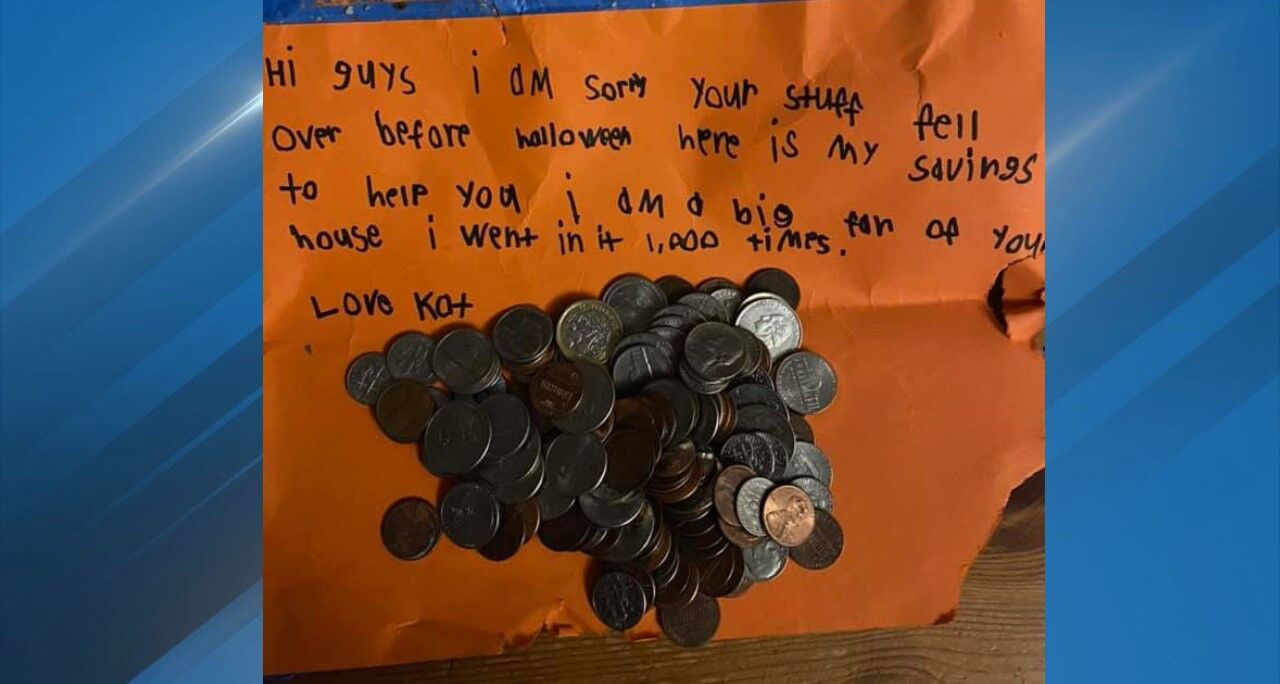 Hi guys i am sorry your stuff fell
over before halloween here is my savings
to help you i am a big fan of your
house i went in it 1,000 times.
Love Kat